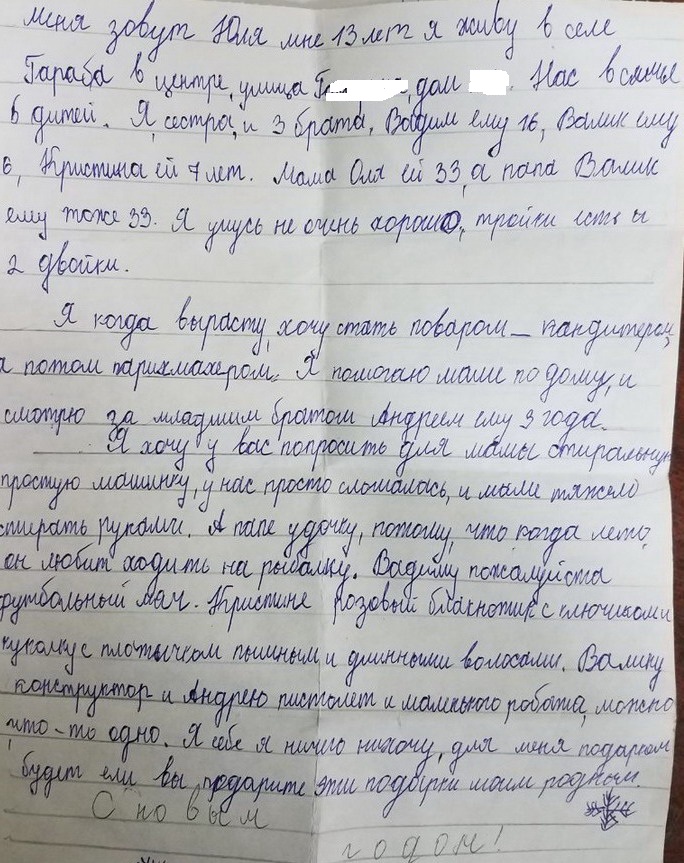 меня зовут Юля мне 13 лет я живу в селе
Тараба в центре, улица Г дом . Нас в семье
6 дитей. Я, сестра, и 3 брата, Вадим ему 16, Валик ему
6, Кристина ей 7 лет. Мама Оля ей 33, а папа Валик
ему тоже 33. Я учусь не очень хорошо, тройки есть и
2 двойки.
Я когда вырасту, хочу стать поваром – кандитером,
а потом парикмахером. Я помогаю маме по дому, и
смотрю за младшим братом Андреем ему 3 года.
Я хочу у вас попросить для мамы стиральную
простую машинку, у нас просто сломалась, и маме тяжело
стирать руками. А папе удочку, потому, что когда лето,
он любит ходить на рыбалку. Вадиму пожалуйста
футбольный мяч. Кристине розовый блакнотик с ключиком и
куколку с плотычком пышным и длинными волосами. Валику
конструктор и Андрею пистолет и маленького робота, можно
что-то одно. Я себе я ничего нихочу, для меня подарком
будет ели вы подарите эти подарки моим родным.
С новым
годом!